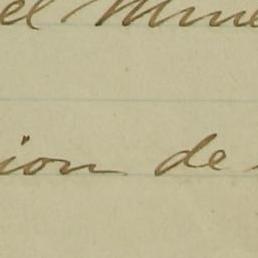 el Mine
ion de